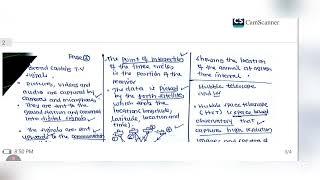 CS CamScanner
2
Page ②
Broad casting T.V
signals
Pictures, videos and
audio are captured by
camera and microphones
They are sent to the
ground station and converted
into digital signals
The signals are sent
upwards to the communication
The point of intersection
of the three circles
is the position of the
receiver
The data is picked
by the
which sends the
location (longitude,
latitude, location and
time).
showing the location
of the animal at
time interval
Hubble telescope
Hubble space telescope
(HST) is space based
observatory that
capture high resolution
8:50 PM
3/4